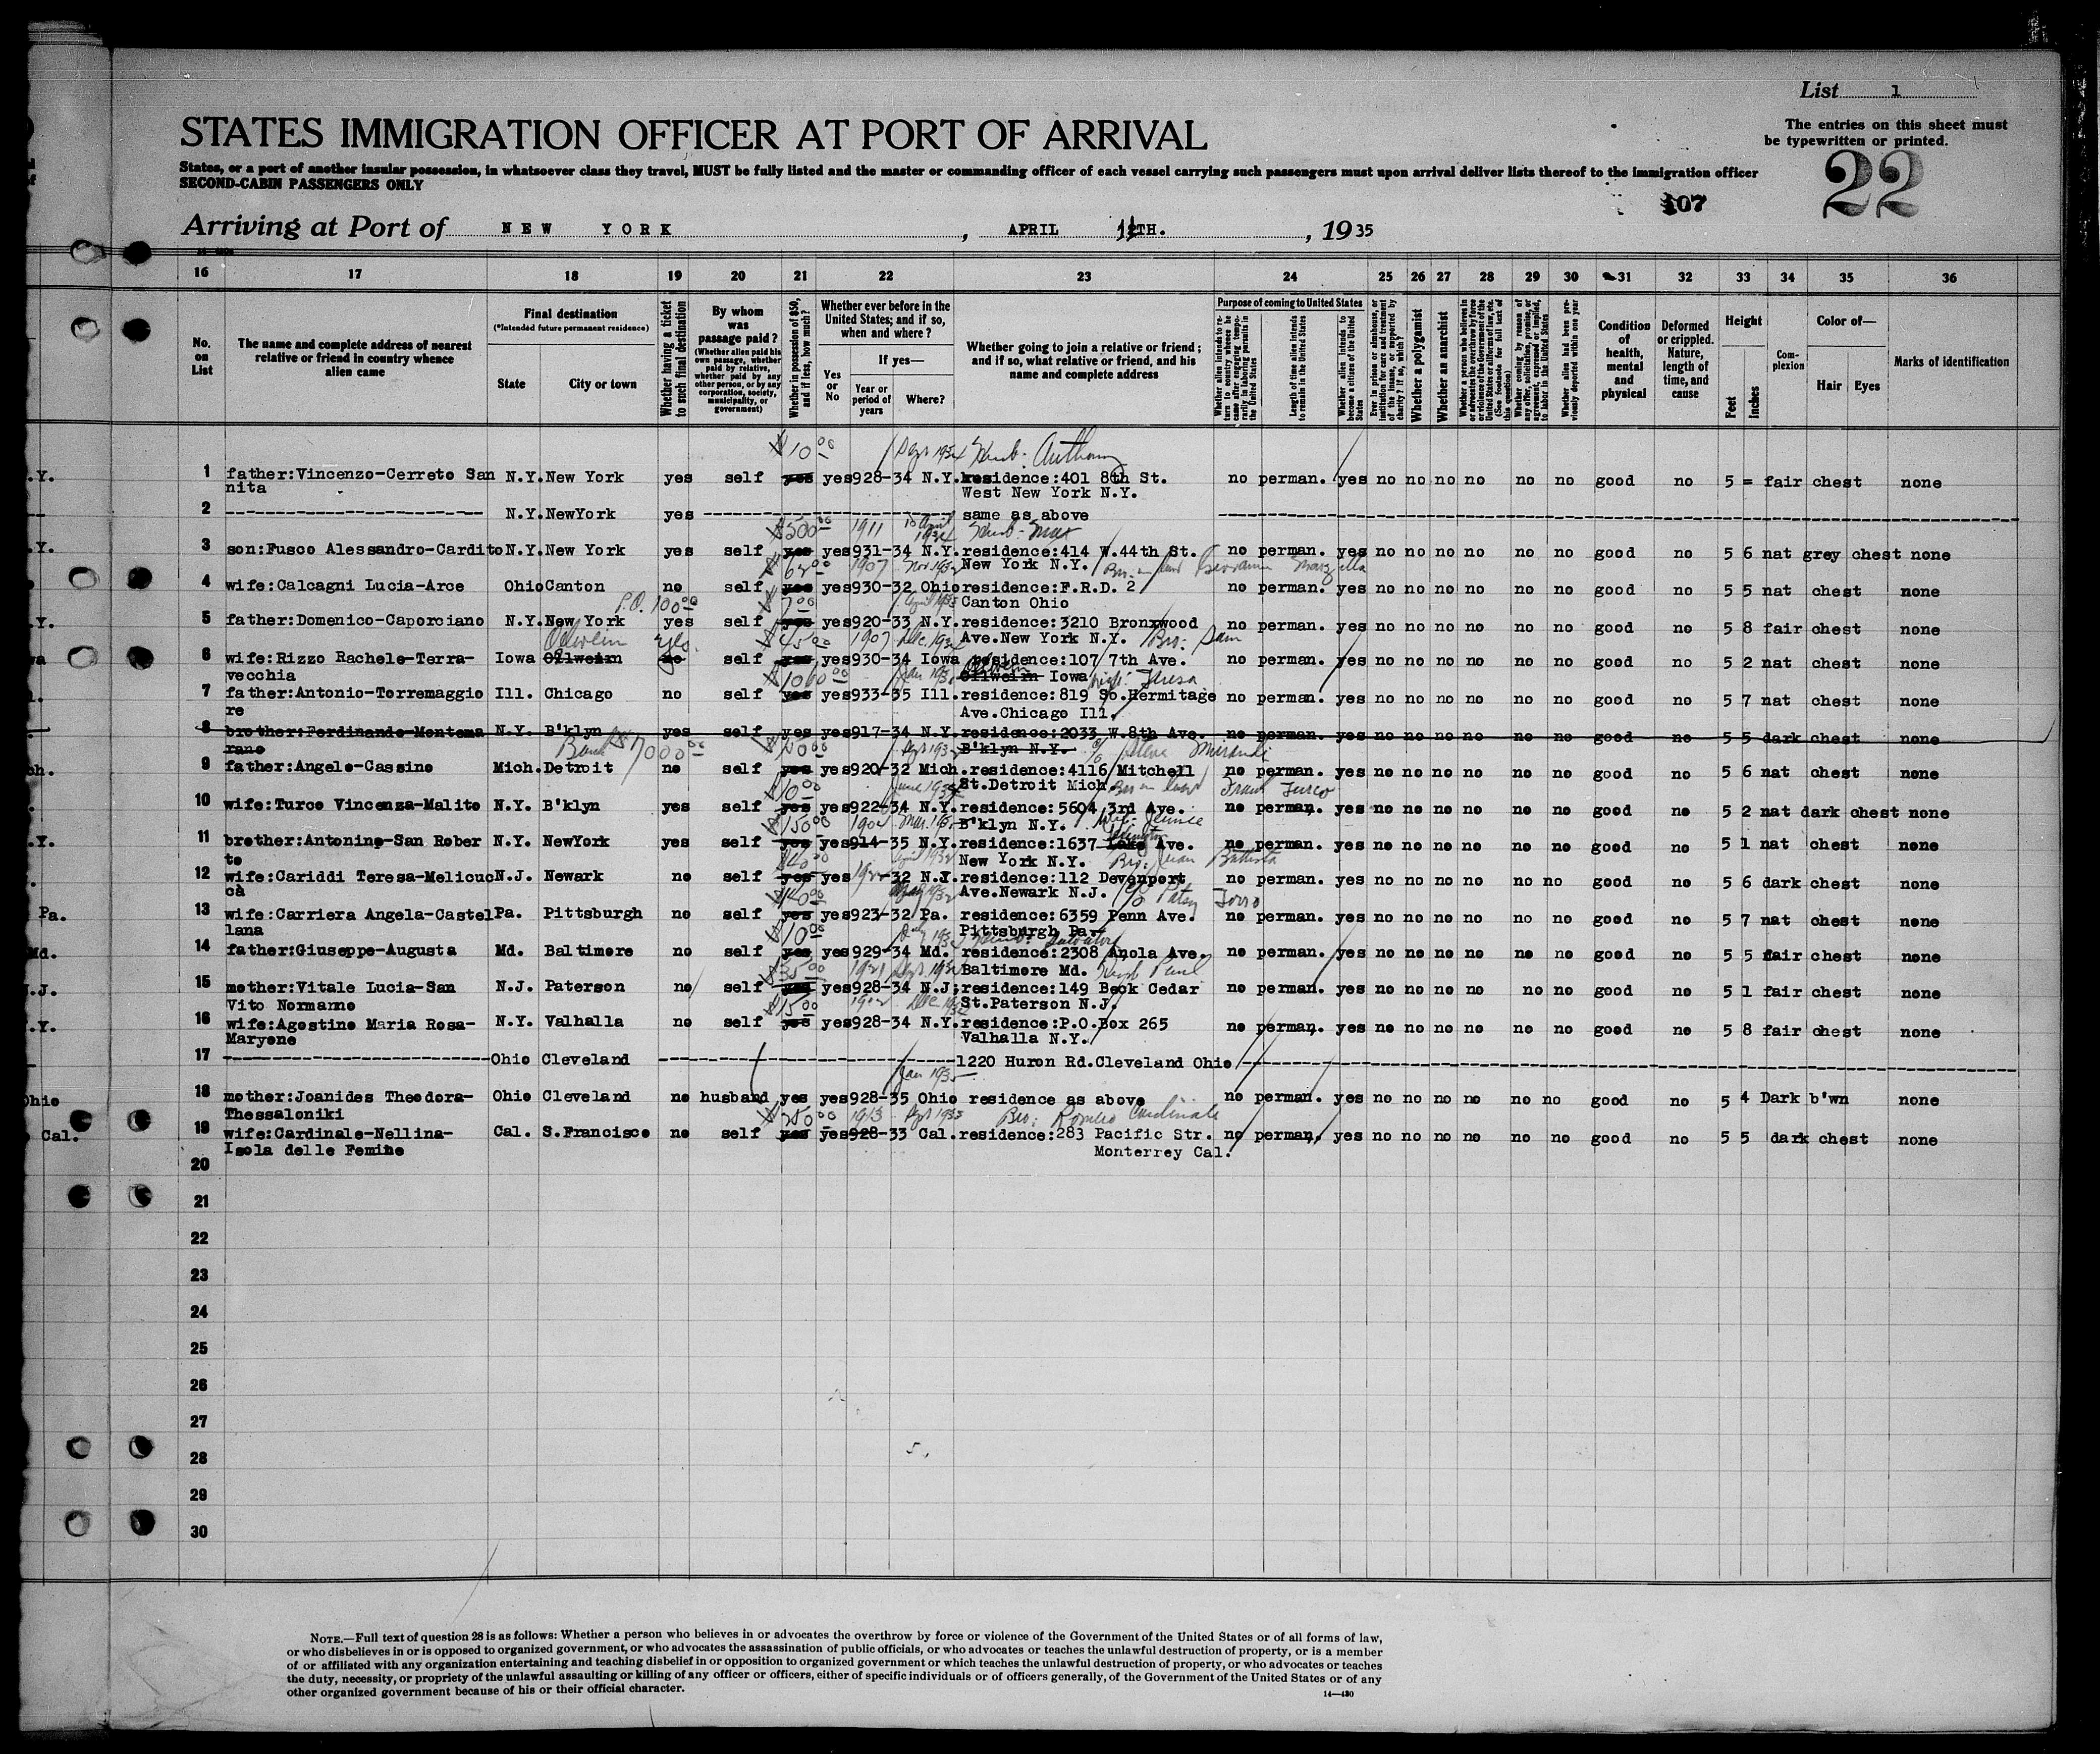 List 1
The entries on this sheet must
be typewritten or printed.
22
STATES IMMIGRATION OFFICER AT PORT OF ARRIVAL
States, or a port of another insular possession, in whatsoever class they travel, MUST be fully listed and the master or commanding officer of each vessel carrying such passengers must upon arrival deliver lists thereof to the immigration officer
SECOND-CABIN PASSENGERS ONLY
107
Arriving at Port of NEW YORK, APRIL TH., 1935
16 17 18 19 20 21 22 23 24 25 26 27 28 29 30 31 32 33 34 35 36
No. on List
The name and complete address of nearest relative or friend in country whence alien came
Final destination
(*Intended future permanent residence)
State City or town
Whether having a ticket to such final destination
By whom was passage paid?
(Whether alien paid his own passage, whether paid by relative, whether paid by any other person, or by any corporation, society, municipality, or government)
Whether in possession of $50, and if less, how much?
Whether ever before in the United States; and if so, when and where?
Yes or No
If yes—
Year or period of years Where?
Whether going to join a relative or friend; and if so, what relative or friend, and his name and complete address
Purpose of coming to United States
Whether alien intends to return to country whence he came after engaging temporarily in laboring pursuits in the United States
Length of time alien intends to remain in the United States
Whether alien intends to become a citizen of the United States
Ever in prison or almshouse, or institution for care and treatment of the insane, or supported by charity? If so, which?
Whether a polygamist
Whether an anarchist
Whether coming by reason of any offer, solicitation, promise, or agreement, expressed or implied, to labor in the United States
Whether alien had been previously deported within one year
Condition of health, mental and physical
Deformed or crippled. Nature, length of time, and cause
Height
Feet Inches
Complexion
Color of—
Hair Eyes
Marks of identification
$10.00 Sept 1934 Husb: Anthony
.Y. 1 father:Vincenzo-Cerreto San N.Y. New York yes self yes yes 928-34 N.Y. residence:401 8th St. no perman. yes no no no no no no good no 5 = fair chest none
nita West New York N.Y.
2 N.Y. NewYork yes same as above
$500.00 1911 April 1934 Husb: Max
.Y. 3 son:Fusco Alessandro-Cardito N.Y. New York yes self yes yes 931-34 N.Y. residence:414 W.44th St. no perman. yes no no no no no no good no 5 6 nat grey chest none
New York N.Y.
1907 Nov 1932 Bro. in law
4 wife:Calcagni Lucia-Arce Ohio Canton no self yes yes 930-32 Ohio residence:F.R.D. 2 no perman. yes no no no no no no good no 5 5 nat chest none
P.O. 100.00 $7.00 Canton Ohio
.Y. 5 father:Domenico-Caporciano N.Y. New York yes self yes yes 920-33 N.Y. residence:3210 Bronxwood no perman. yes no no no no no no good no 5 8 fair chest none
Oelwein yes $45.00 1907 Dec. 1934 Ave.New York N.Y. Bro: Sam
6 wife:Rizzo Rachele-Terra- Iowa Ollwein no self yes yes 930-34 Iowa residence:107 7th Ave. no perman. yes no no no no no no good no 5 2 nat chest none
vecchia $1000.00 Oelwein Ollwein Iowa Teresa
7 father:Antonio-Torremaggio Ill. Chicago no self yes yes 933-35 Ill. residence:819 So.Hermitage no perman. yes no no no no no no good no 5 7 nat chest none
re Ave.Chicago Ill.
8 brother:Ferdinando-Montema N.Y. B'klyn yes self yes yes 917-34 N.Y. residence:2033 W.8th Ave. no perman. yes no no no no no no good no 5 5 dark chest none
rano Bank $7000.00 B'klyn N.Y. c/o Steve
ch. 9 father:Angelo-Cassino Mich. Detroit no self yes yes 920-32 Mich. residence:4116 Mitchell no perman. yes no no no no no no good no 5 6 nat chest none
$10.00 June 1934 St.Detroit Mich Bro in law Frank Turco
10 wife:Turco Vincenza-Malito N.Y. B'klyn yes self yes yes 922-34 N.Y. residence:5604 3rd Ave. no perman. yes no no no no no no good no 5 2 nat dark chest none
$150.00 B'klyn N.Y. Wife: Jennie
.Y. 11 brother:Antonino-San Rober N.Y. NewYork yes self yes yes 914-35 N.Y. residence:1637 Lexington Ave. no perman. yes no no no no no no good no 5 1 nat chest none
to New York N.Y. Bro: Battista
12 wife:Cariddi Teresa-Melicuc N.J. Newark no self yes yes -32 N.J. residence:112 Devenport no perman. yes no no no no no no good no 5 6 dark chest none
cà $40.00 Ave.Newark N.J. c/o Patsy
Pa. 13 wife:Carriera Angela-Castel Pa. Pittsburgh no self yes yes 923-32 Pa. residence:6359 Penn Ave. no perman. yes no no no no no no good no 5 7 nat chest none
lana $10.00 Pittsburgh Pa.
Md. 14 father:Giuseppe-Augusta Md. Baltimore no self yes yes 929-34 Md. residence:2308 Anola Ave. no perman. yes no no no no no no good no 5 5 fair chest none
$35.00 1921 Sept. 1934 Baltimore Md. Husb Paul
.J. 15 mother:Vitale Lucia-San N.J. Paterson no self yes yes 928-34 N.J. residence:149 Beck Cedar no perman. yes no no no no no no good no 5 1 fair chest none
Vito Normanno $15.00 St.Paterson N.J.
.Y. 16 wife:Agostino Maria Rosa- N.Y. Valhalla no self yes yes 928-34 N.Y. residence:P.O.Box 265 no perman. yes no no no no no no good no 5 8 fair chest none
Maryone Valhalla N.Y.
17 Ohio Cleveland 1220 Huron Rd.Cleveland Ohio
Jan 1935
Ohio 18 mother:Joanides Theodora- Ohio Cleveland no husband yes yes 928-35 Ohio residence as above no perman. yes no no no no no no good no 5 4 Dark b'wn none
Thessaloniki $250.00 1913 Sept 1933 Bro: Romeo Cardinale
Cal. 19 wife:Cardinale-Nellina- Cal. S.Francisco no self yes yes 928-33 Cal. residence:283 Pacific Str. no perman. yes no no no no no no good no 5 5 dark chest none
Isola delle Femine Monterrey Cal.
20
21
22
23
24
25
26
27
28
29
30
NOTE.—Full text of question 28 is as follows: Whether a person who believes in or advocates the overthrow by force or violence of the Government of the United States or of all forms of law,
or who disbelieves in or is opposed to organized government, or who advocates the assassination of public officials, or who advocates or teaches the unlawful destruction of property, or is a member
of or affiliated with any organization entertaining and teaching disbelief in or opposition to organized government or which teaches the unlawful destruction of property, or who advocates or teaches
the duty, necessity, or propriety of the unlawful assaulting or killing of any officer or officers, either of specific individuals or of officers generally, of the Government of the United States or of any
other organized government because of his or their official character.
14—430